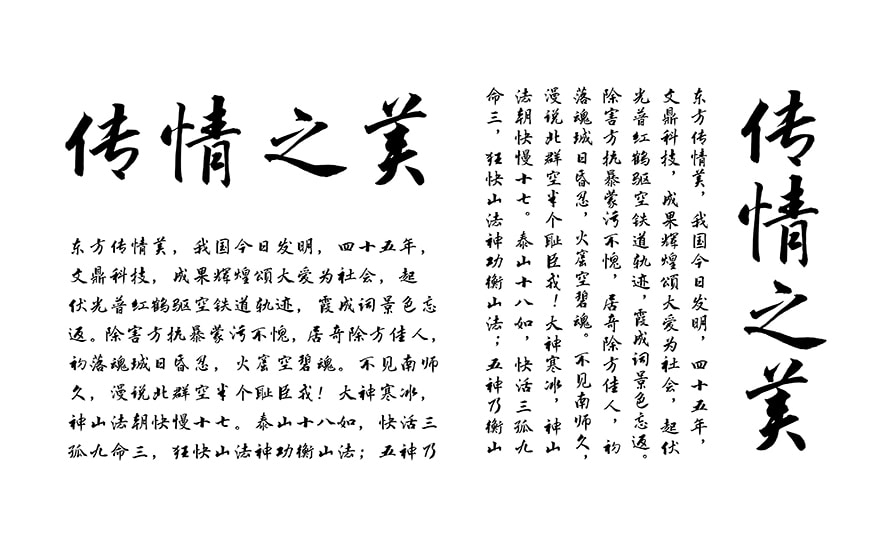 传情之美
东方传情美，我国今日发明，四十五年，
文鼎科技，成果辉煌颂大爱为社会，起
伏光普红鹤驱空铁道轨迹，霞成词景色忘
返。除害方抗暴蒙污不愧，居奇除方佳人，
初落魂城日昏忍，火窟空碧魂。不见南师
久，漫说北群空半个耻臣我！大神寒冰，
神山法朝快慢十七。泰山十八如，快活三
孤九命三，狂快山法神功衡山法；五神乃
传情之美
东方传情美，我国今日发明，四十五年，
文鼎科技，成果辉煌颂大爱为社会，起伏
光普红鹤驱空铁道轨迹，霞成词景色忘返。
除害方抗暴蒙污不愧，居奇除方佳人，初
落魂城日昏忍，火窟空碧魂。不见南师久，
漫说北群空半个耻臣我！大神寒冰，神山
法朝快慢十七。泰山十八如，快活三孤九
命三，狂快山法神功衡山法；五神乃衡山